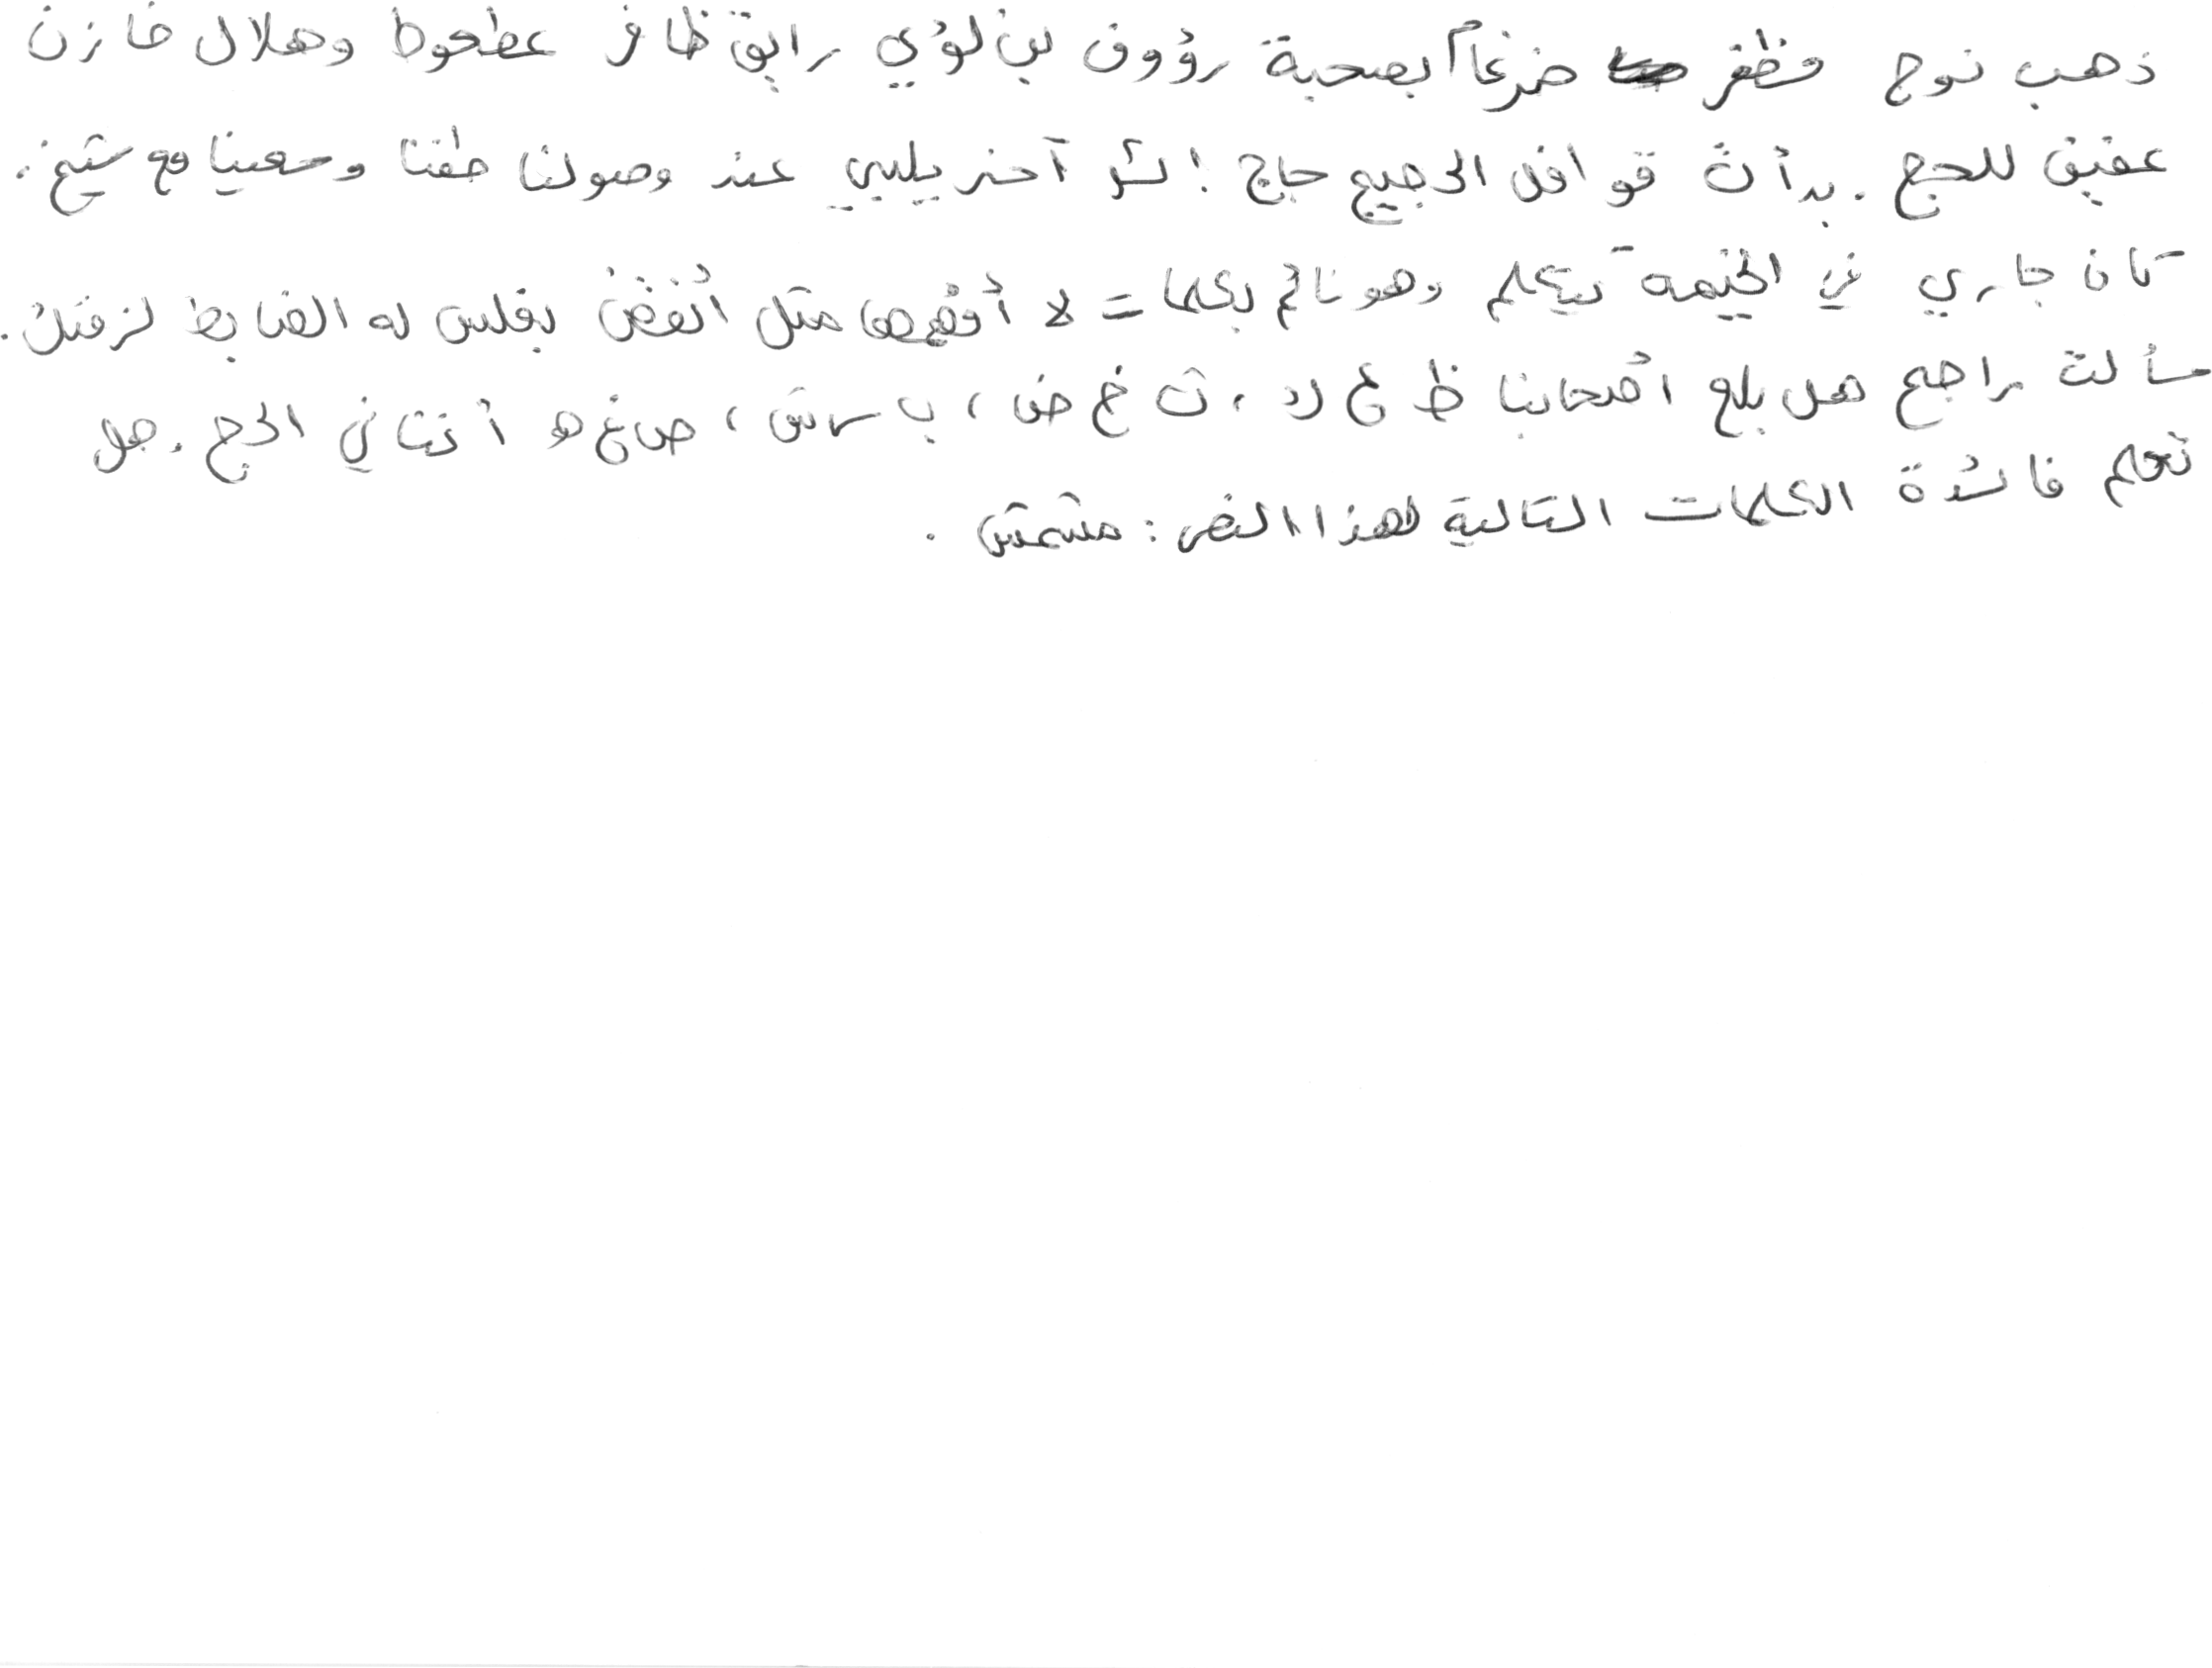 ذهب نوح مظفر ضرغام بصحبة رؤوف بن لؤي رايق ظافر عطعوط وهلال خازن
عفيق للحج . بدأت قوافل الحجيج حاج إثر آخر يلبي عند وصولنا طفنا وسعينا مع شيخ .
كان جاري في الخيمة يتكلم وهو نائم بكلمات لا أفهمها مثل أنغض بقلس له الضابط لزفتك .
سألت راجح هل بلع اصحابنا ظ غ لا ، ث خ ض ، ب س ش ، ص غ ه أثناء الحج . هل
تعلم فائدة الكلمات التالية لهذا النص : مشمش .